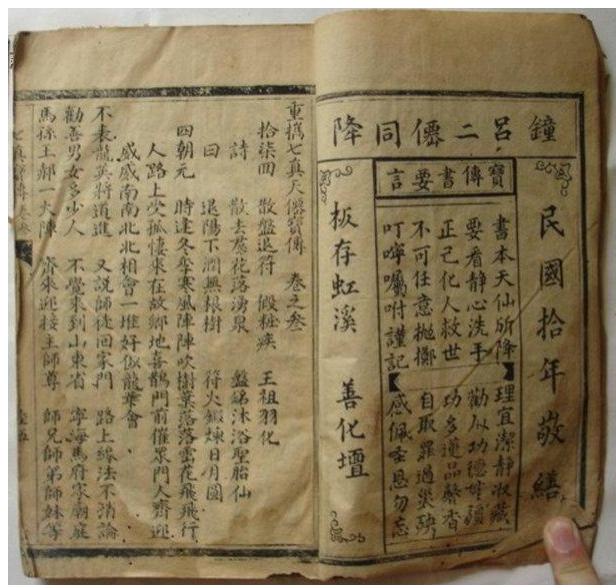 鐘呂二僊同降
民國拾年敬繕
寶傳書要言
書本天仙所降 理宜潔靜收藏
要看静心洗手 勸人功德無疆
正己化人救世 功多蓮品馨香
不可任意拋擲 自取罪過災殃
叮嚀囑咐謹記 感佩圣恩勿忘
板存虹溪 善化壇
重搆七真天僊寶傳 卷之叁
拾柒回 散盤退符 假粧疾 王祖羽化
詩 散去 花落湧泉 盤 沐浴聖胎仙
曰 退陽下澗無根樹 符火鍛煉日月圓
四朝元 時逢冬季寒風陣陣吹樹葉落落雪花飛飛行
人路上受孤悽來在故鄉地喜鵲門前催眾門人齊迎
戚戚南南北北相會一堆好似龍華會
不表龍英將道進 又說師徒回家門 路上緣法不消論
勸善男女多少人 不覺來到山東省 寧海馬府家廟庭
馬孫王郝一大陣 齊來迎接王師尊 師兄師弟師妹等
七真寶傳 卷叁